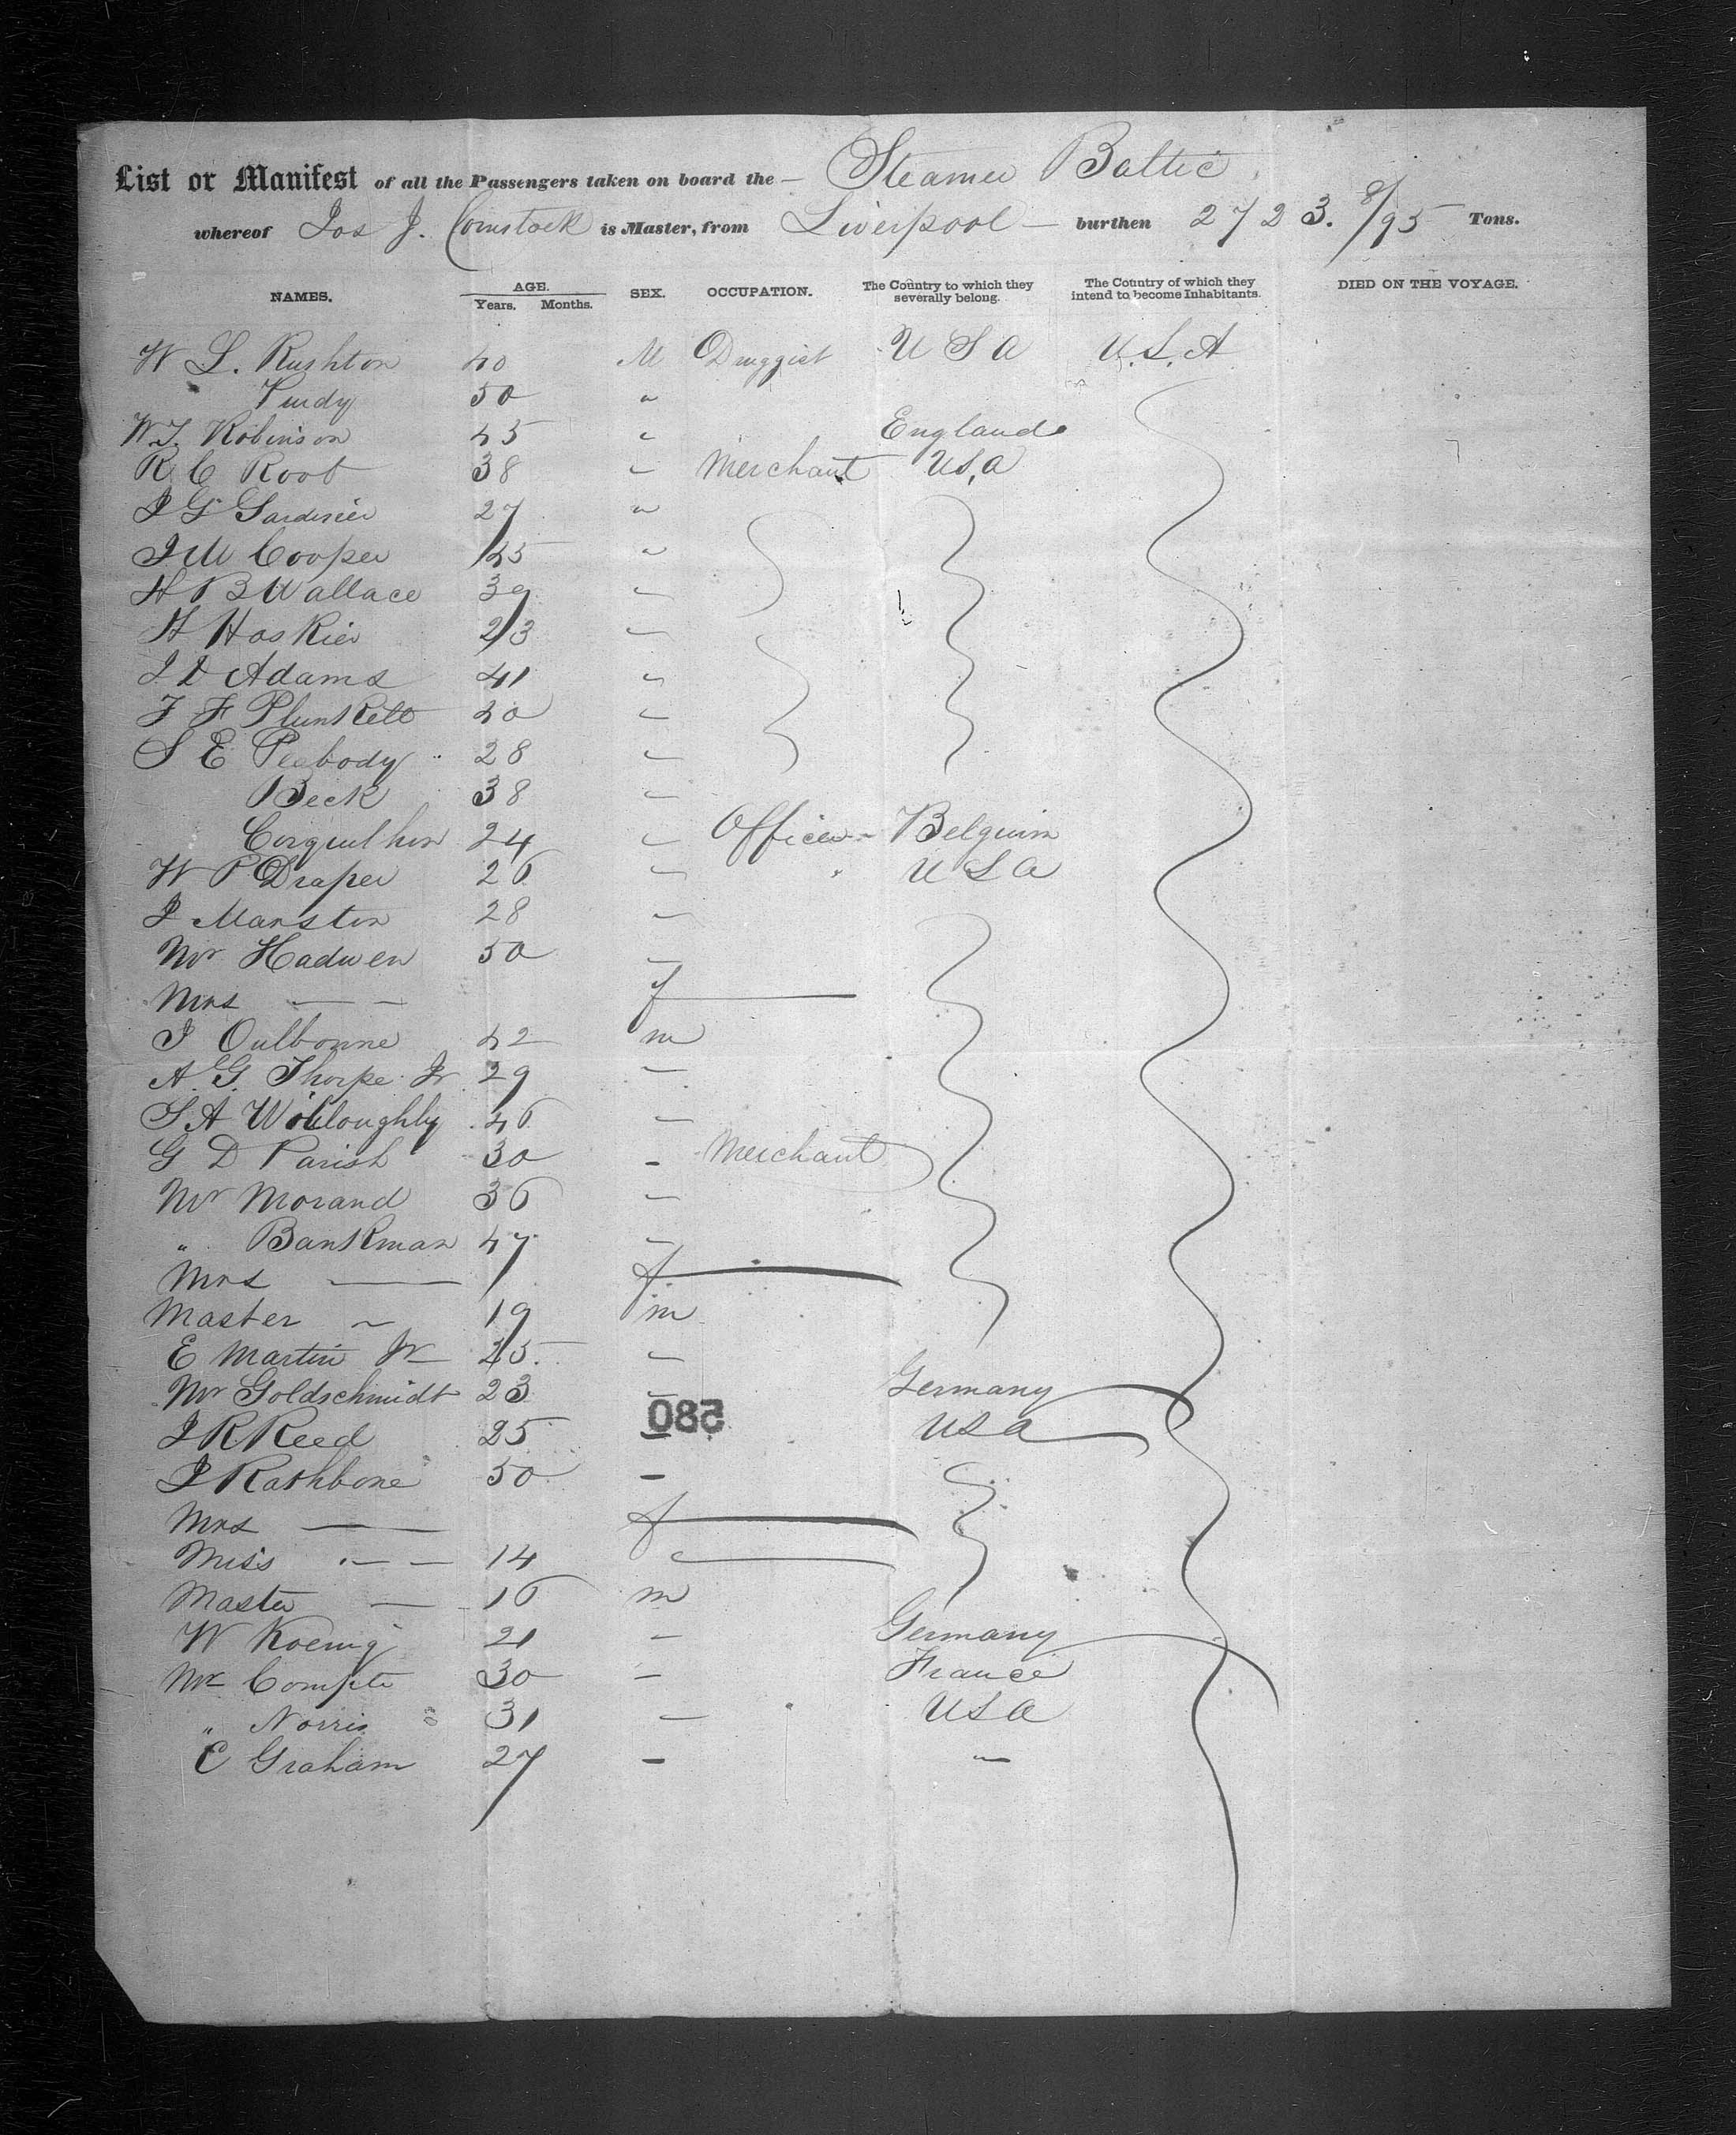 List or Manifest of all the Passengers taken on board the — Steamer Baltic
whereof Jos J. Comstock is Master, from Liverpool — burthen 2723. 8/95 Tons.
NAMES. AGE. Years. Months. SEX. OCCUPATION. The Country to which they severally belong. The Country of which they intend to become Inhabitants. DIED ON THE VOYAGE.
W L. Rushton 40 M Druggist U S A U.S.A
50 "
W.T. Robinson 45 " England
R C Root 38 " Merchant U S, A
J G Gardinier 27 "
J W Cooper 45 "
H B Wallace 39 "
H Hoskier 23 "
J D Adams 41 "
T F Plunkett 40 "
S E Peabody 28 "
Beck 38 "
24 " Officer - Belguim
W P Draper 26 " U S A
J Marston 28 "
Mr Hadwen 50 "
Mrs — — f
J Oulbonne 42 m
A. G. Thorpe Jr 29 "
S A Willoughby 46 "
G D Parish 30 " Merchant
Mr Morand 36 "
" Bankman 47 "
Mrs — f
Master ~ 19 m
E Martin Jr 25. "
Mr Goldschmidt 23 " Germany
580
J R Reed 25 " U S A
J Rathbone 50 "
Mrs — — f
Miss — — 14 "
Master — 16 m
W Koenig 21 " Germany
Mr Compte 30 " France
" Norris 31 " U S A
E Graham 27 " "